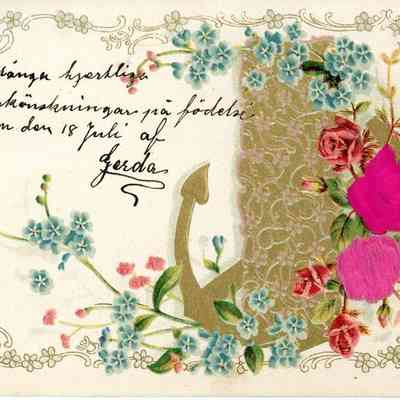 många hjertliga
lyckönskningar på födelse
n den 18 Juli af
Gerda